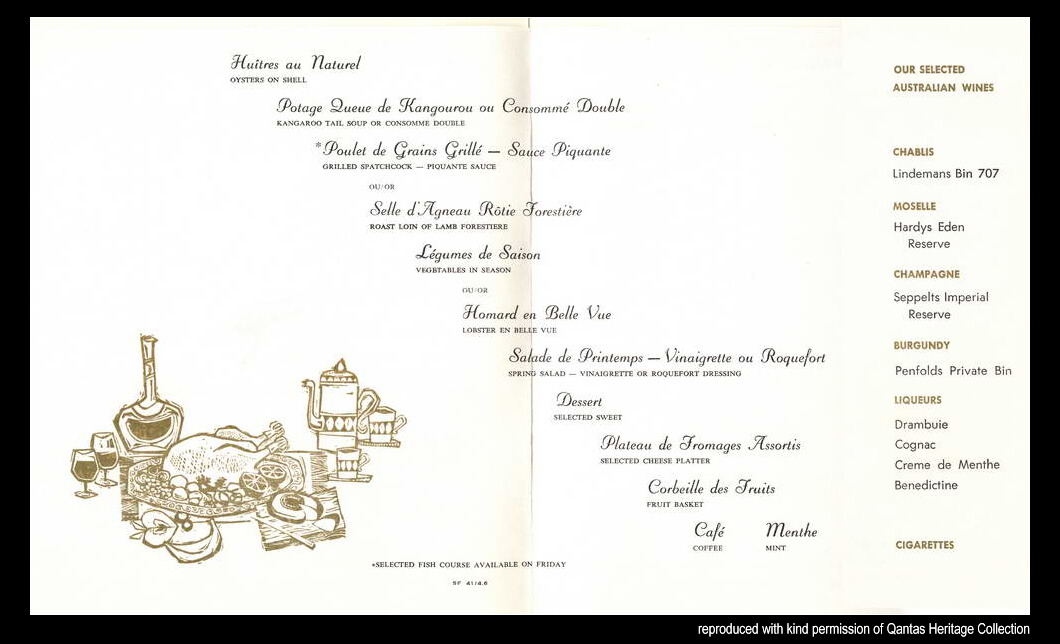 Huîtres au Naturel
OYSTERS ON SHELL
Potage Queue de Kangourou ou Consommé Double
KANGAROO TAIL SOUP OR CONSOMME DOUBLE
*Poulet de Grains Grillé — Sauce Piquante
GRILLED SPATCHCOCK — PIQUANTE SAUCE
OU/OR
Selle d'Agneau Rôtie Forestière
ROAST LOIN OF LAMB FORESTIERE
Légumes de Saison
VEGETABLES IN SEASON
OU/OR
Homard en Belle Vue
LOBSTER EN BELLE VUE
Salade de Printemps — Vinaigrette ou Roquefort
SPRING SALAD — VINAIGRETTE OR ROQUEFORT DRESSING
Dessert
SELECTED SWEET
Plateau de Fromages Assortis
SELECTED CHEESE PLATTER
Corbeille des Fruits
FRUIT BASKET
Café Menthe
COFFEE MINT
*SELECTED FISH COURSE AVAILABLE ON FRIDAY
SF 41/4.6
OUR SELECTED
AUSTRALIAN WINES
CHABLIS
Lindemans Bin 707
MOSELLE
Hardys Eden
Reserve
CHAMPAGNE
Seppelts Imperial
Reserve
BURGUNDY
Penfolds Private Bin
LIQUEURS
Drambuie
Cognac
Creme de Menthe
Benedictine
CIGARETTES
reproduced with kind permission of Qantas Heritage Collection